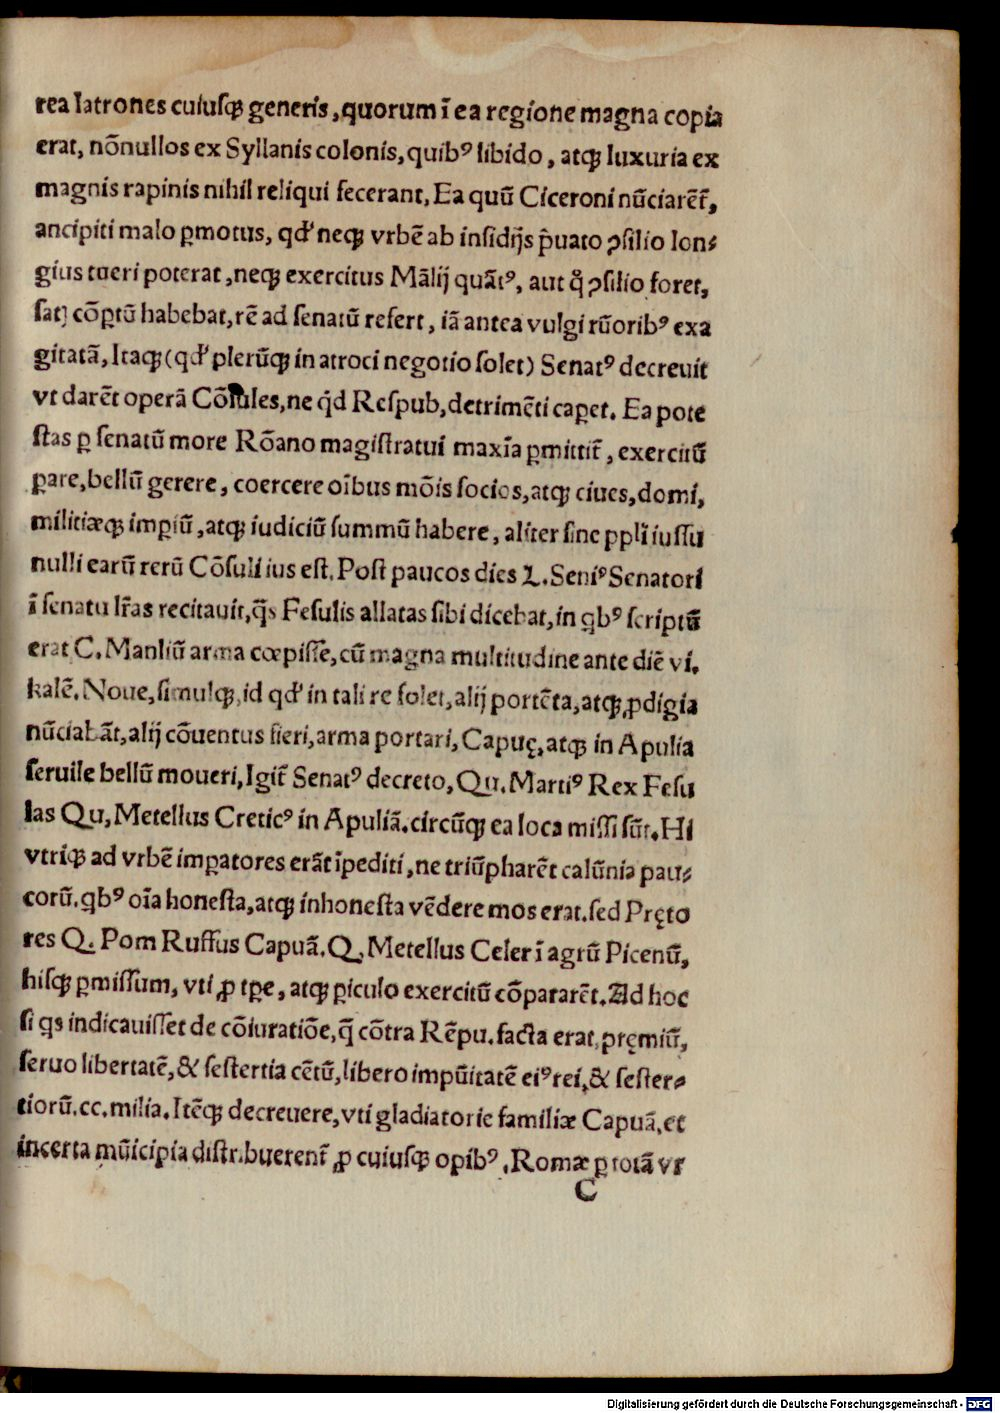 rea latrones cuiuſqꝫ generis, quorum ī ea regione magna copia
erat, nōnullos ex Syllanis colonis, quibꝰ libido, atqꝫ luxuria ex
magnis rapinis nihil reliqui fecerant, Ea quū Ciceroni nūciarēt̄,
ancipiti malo ꝑmotus, qđ neqꝫ vrbē ab inſidijs p̄uato ꝯſilio lon⸗
gius tueri poterat, neqꝫ exercitus Mālij quātꝰ, aut q̊ ꝯſilio foret,
ſatꝭ cōꝑtū habebat, rē ad ſenatū refert, iā antea vulgi rūoribꝰ exa
gitatā, Itaqꝫ (qđ plerūqꝫ in atroci negotio ſolet) Senatꝰ decreuit
vt darēt operā Cōſules, ne qd Reſpub, detrimēti caꝑet. Ea pote
ſtas ꝑ ſenatū more Rōano magiſtratui maxīa ꝑmittit̄, exercitū
ꝑare, bellū gerere, coercere oībus mōis ſocios, atqꝫ ciues, domi,
militiæqꝫ imꝑiū, atqꝫ iudiciū ſummū habere, aliter ſine ppli iuſſu
nulli earū rerū Cōſuli ius eſt. Poſt paucos dies L. Seniꝰ Senatori
ī ſenatu lr̄as recitauit, q̄s Feſulis allatas ſibi dicebat, in qbꝰ ſcriptū
erat C. Manliū arma cœpiſſe, cū magna multitudine ante diē vi.
kalē. Noue, ſimulqꝫ, id qđ in tali re ſolet, alij portēta, atqꝫ ꝓdigia
nūciabāt, alij cōuentus fieri, arma portari, Capuę, atqꝫ in Apulia
ſeruile bellū moueri, Igit̄ Senatꝰ decreto, Qu. Martiꝰ Rex Feſu
las Qu, Metellus Creticꝰ in Apuliā. circūqꝫ ea loca miſſi ſūt. Hi
vtriqꝫ ad vrbē imꝑatores erāt īpediti, ne triūpharēt calūnia pau⸗
corū. qbꝰ oīa honeſta, atqꝫ inhoneſta vēdere mos erat. ſed Pręto
res Q. Pom Ruffus Capuā. Q. Metellus Celer ī agrū Picenū,
hiſqꝫ ꝑmiſſum, vti ꝓ tꝑe, atqꝫ ꝑiculo exercitū cōpararēt. Ad hoc
ſi qs indicauiſſet de cōiuratiōe, q̄ cōtra Rēpu. facta erat, pręmiū,
ſeruo libertatē, & ſeſtertia cētū, libero impūitatē eiꝰ rei, & ſeſter⸗
tiorū. cc. milia. Itēqꝫ decreuere, vti gladiatorie familiæ Capuā, et
incerta mūicipia diſtribuerent̄ ꝓ cuiuſqꝫ opibꝰ. Romæ ꝑ totā vr
C
Digitalisierung gefördert durch die Deutsche Forschungsgemeinschaft - DFG